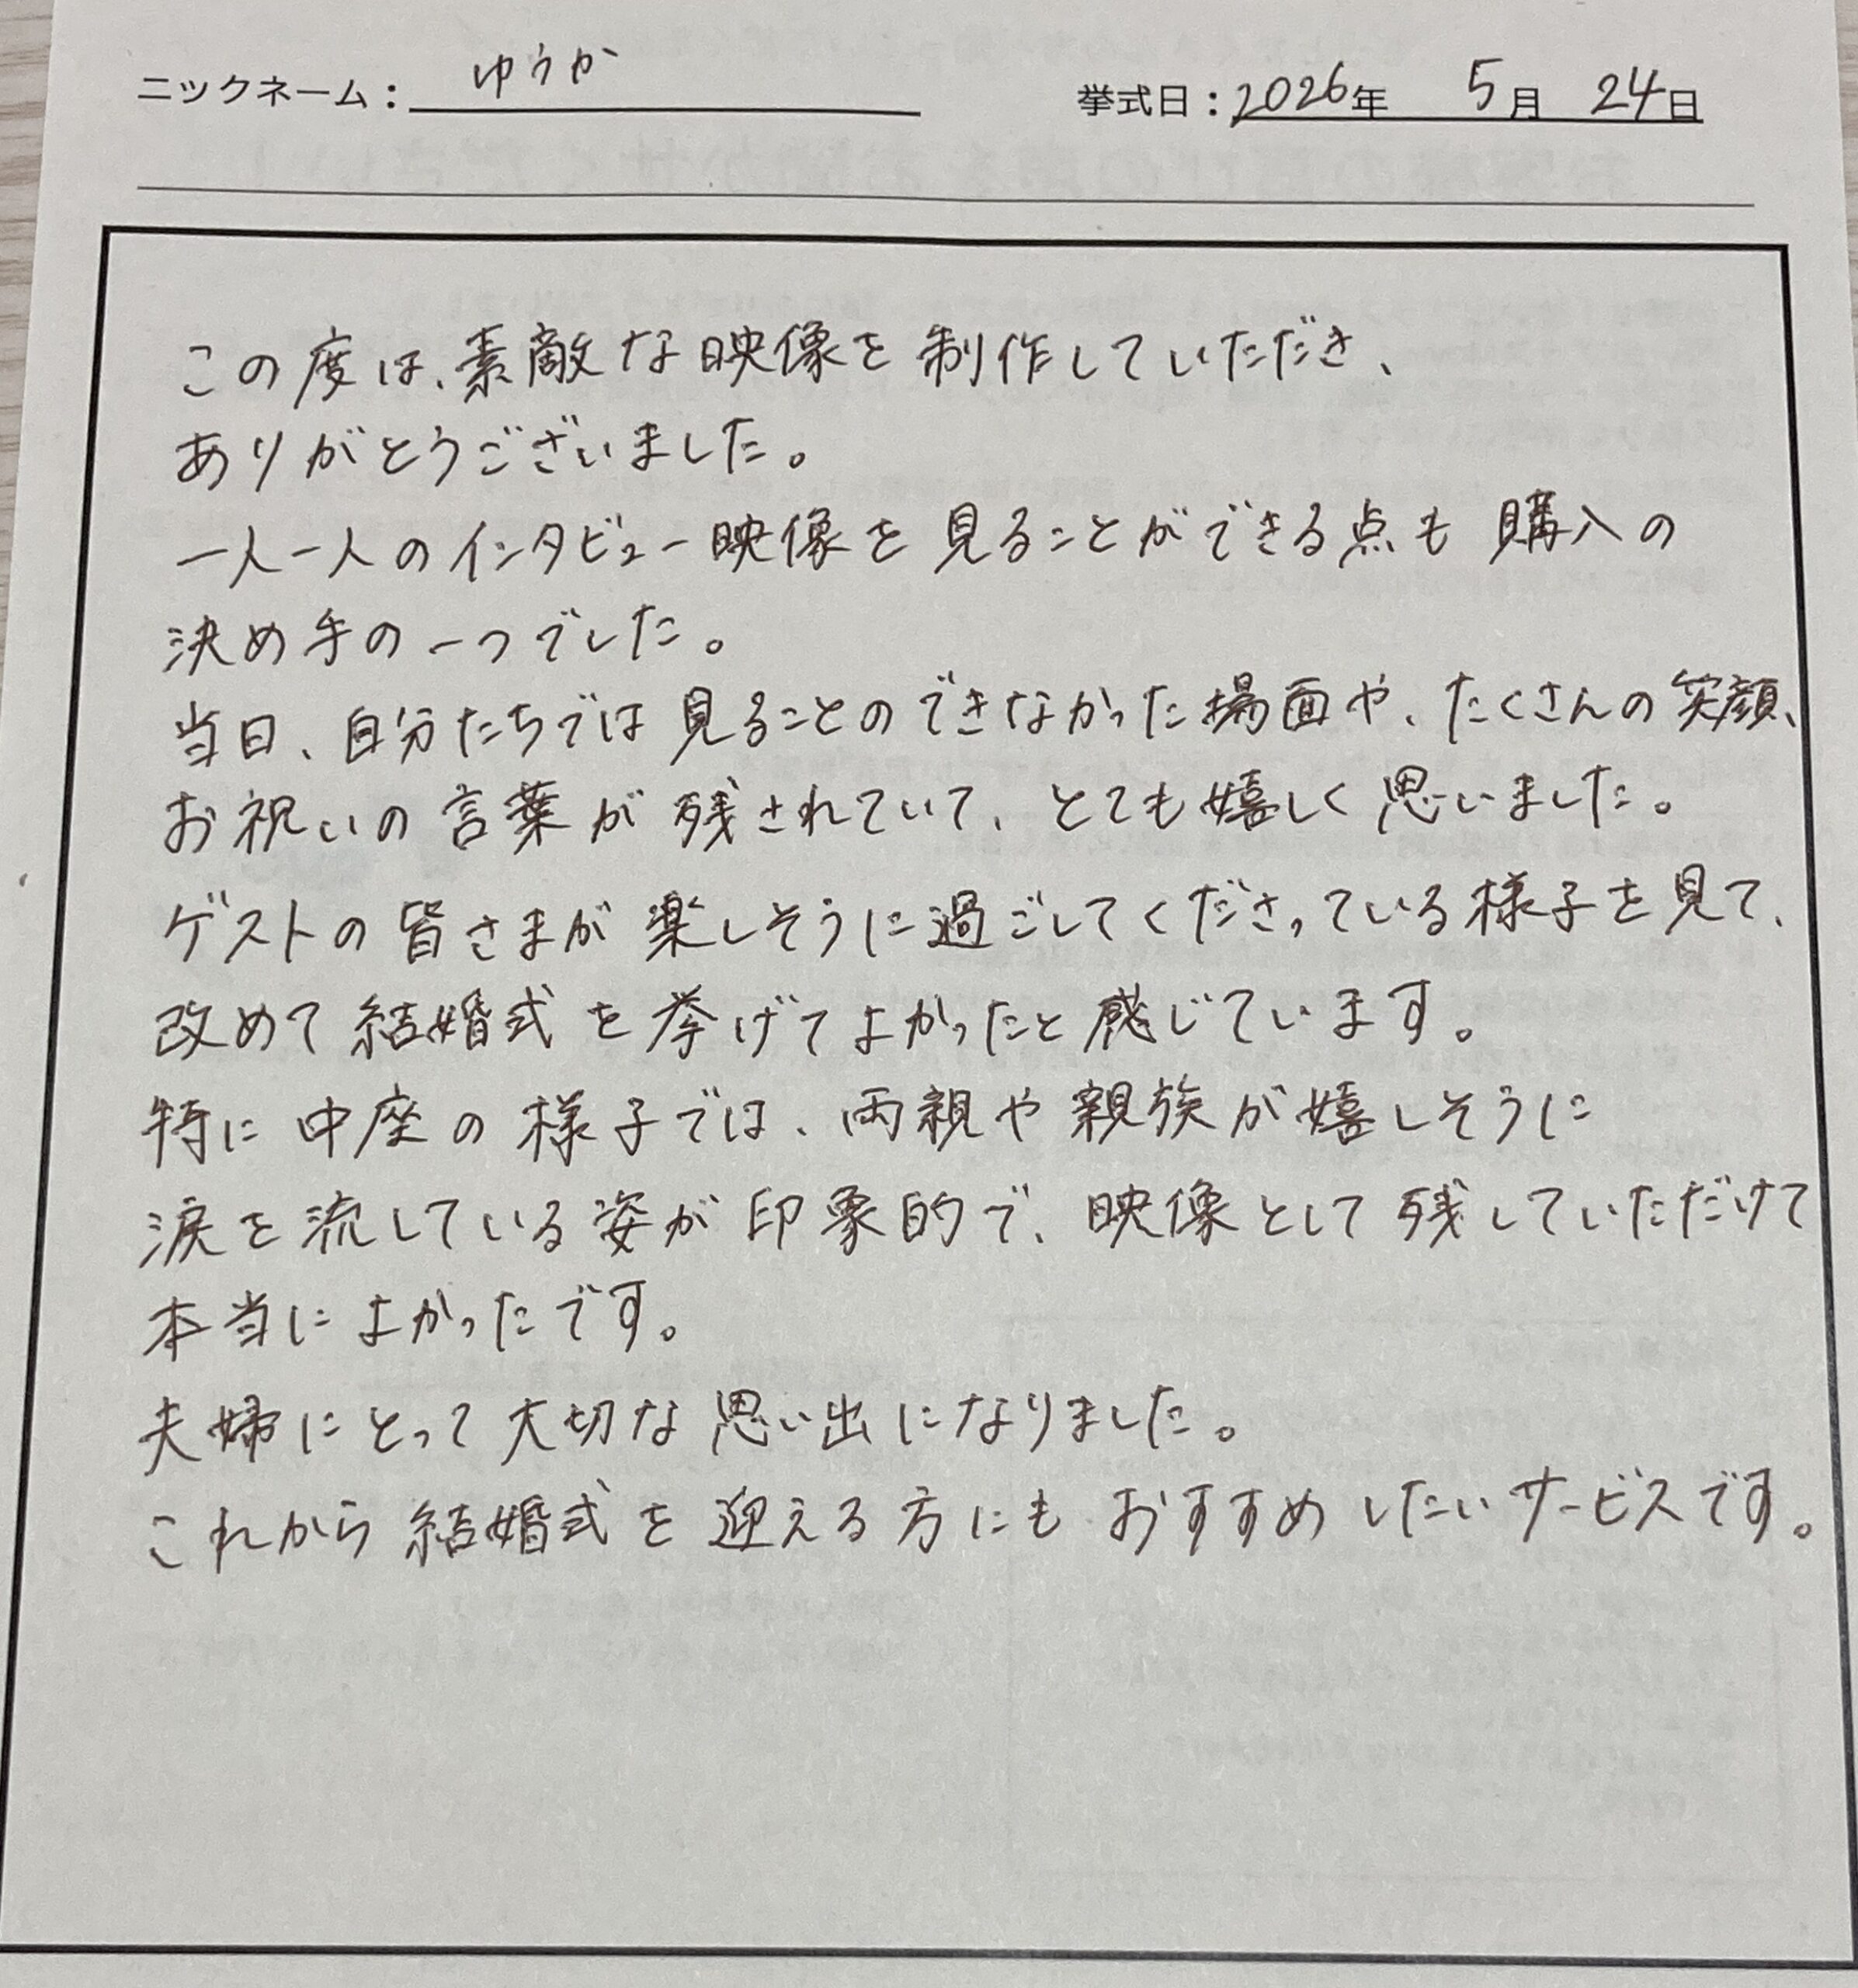 ニックネーム：ゆうか 挙式日：2026年 5月 24日
この度は、素敵な映像を制作していただき、
ありがとうございました。
一人一人のインタビュー映像を見ることができる点も購入の
決め手の一つでした。
当日、自分たちでは見ることのできなかった場面や、たくさんの笑顔、
お祝いの言葉が残されていて、とても嬉しく思いました。
ゲストの皆さまが楽しそうに過ごしてくださっている様子を見て、
改めて結婚式を挙げてよかったと感じています。
特に中座の様子では、両親や親族が嬉しそうに
涙を流している姿が印象的で、映像として残していただけて
本当によかったです。
夫婦にとって大切な思い出になりました。
これから結婚式を迎える方にもおすすめしたいサービスです。